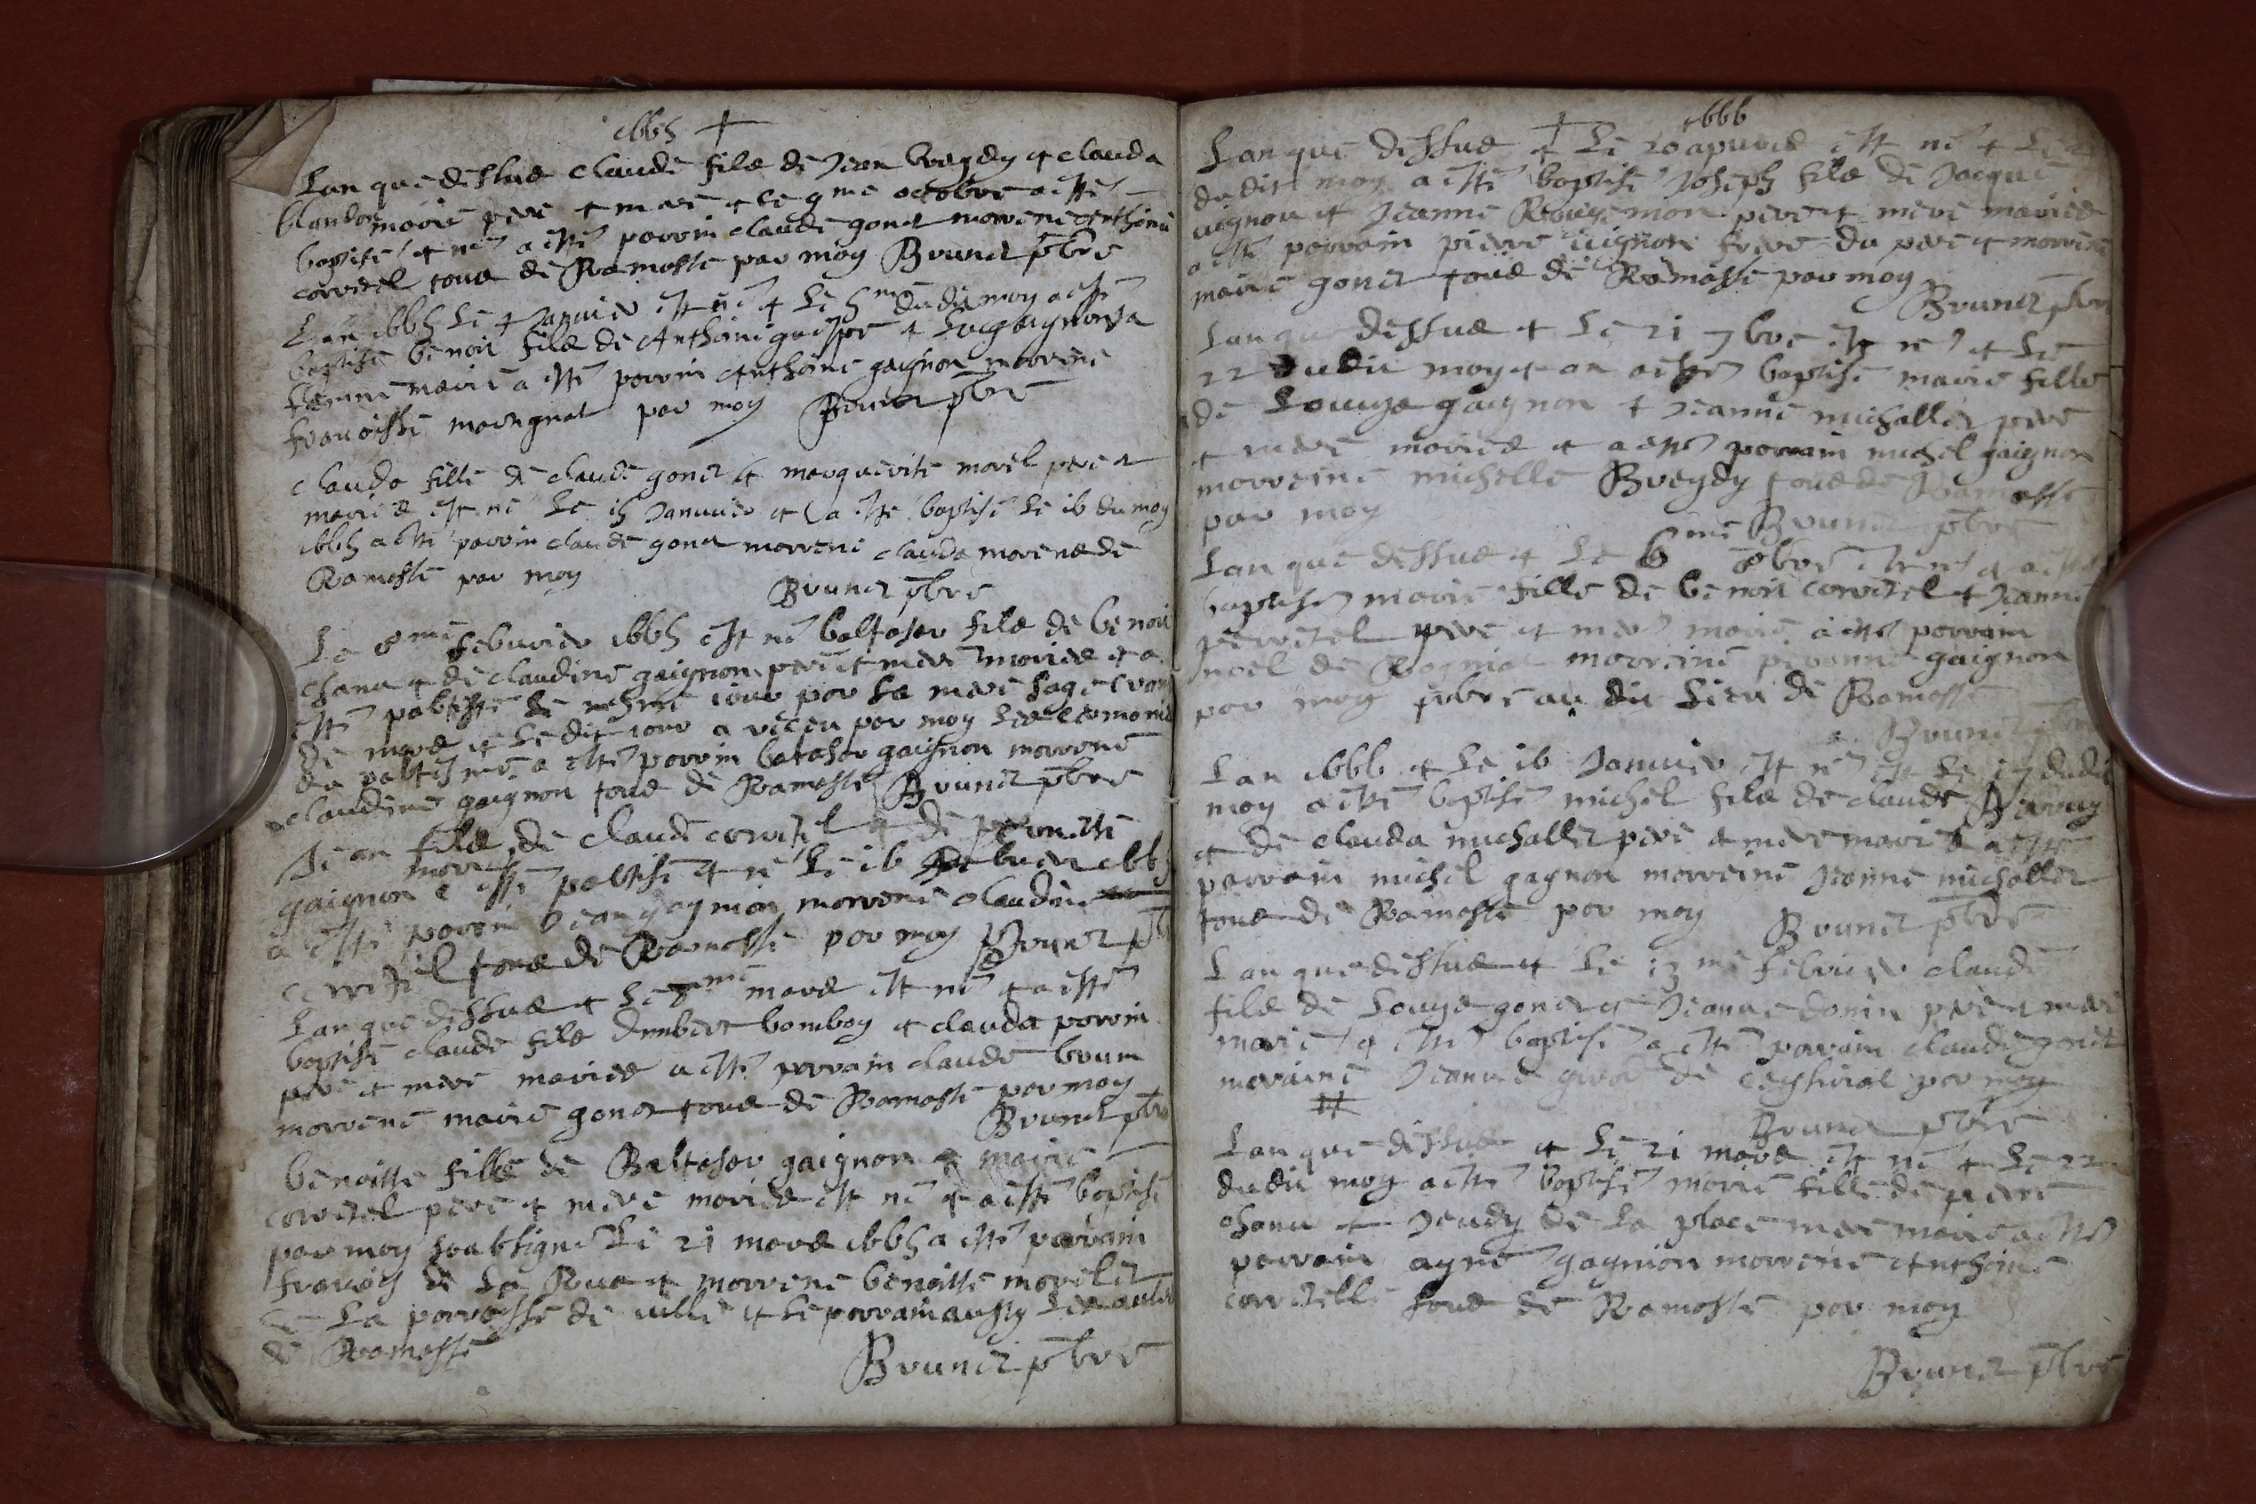 1665 +
Lan que dessus claude filz de Jean bregdy et clauda
blandon marie pere et mere et le 9me octobre a esté
baptisé et né a esté parrin claude gonet morrene Anthoina
corretel tous de Ramasse par moy Brunet pbre
Lan 1665 Le 4 Januier est né et le 5me dudit moy a esté
baptisé benoit filz de Anthoine
femme marie a esté parrin Anthoine gaignon morrene
francoise par moy Brunet pbre
clauda fille de claude gonet et marguerite morel pere et
maries est né Le 15 Januier et a esté baptisé le 16 du moy
1665 a esté parrin claude gonet morrene clauda de
Ramasse par moy
Brunet pbre
Le 8me febvrier 1665 est né baltasar filz de benoit
chanu et de claudine gaignon pere et mere maries et a
esté pabtisé Le mesme iour par la mere sage
de et le dit iour a receu par moy les ceremonie
du pabtesme a esté parrin batasar gaignon morrene
claudine gaignon tous de Ramasse Brunet pbre
Jean filz de claude corretel et de
gaignon a esté pabtisé et né le 16 1665
a esté parrin Jean gagnion morrene claudine
corretel tous de Ramasse par moy Brunet p
Lan que dessus et Le me mars est né et a esté
baptisé claude filz dimbert bomboy et clauda porrin
pere et mere maries a esté parrain claude brun
morrene marie gonet tous de Ramasse par moy
Brunet pbre
benoitte fille de Baltasar gaignon et marie
corretel pere et mere maries est né et a esté baptisé
par moy soubsigné Le 21 mars 1665 a esté parrain
francois de La Rua et morrene benoitte morelet
La parroisse de et Le parrain aussy Les aultre
de Ramasse
Brunet pbre
1666
Lan que dessus et Le 20 apuril est né et Le
dudit moy a esté baptisé Joseph filz de Jacque
uignon et Jeanne Rougemon pere et mere maries
a esté parrain pierre uignon frere du pere et morrene
marie gonet tous de Ramasse par moy
Brunet pbre
Lan que dessus et Le 21 7bre est né et Le
22 dudit moy et an a esté baptisé marie fille
de Louys gaignon et Jeanne michallet pere
et mere maries et a esté parrain michel gaignon
morreine michelle Bregdy tous de Ramasse
par moy Brunet pbre
Lan que dessus et Le 6me 8bre est né et a esté
baptisé marie fille de benoit corretel et Jeanne
perretel pere et mere marie a esté parrain
noel de morreine pernne gaignon
par moy pbre au dit Lieu de Ramasse
Brunet pbre
Lan 1666 et Le 16 Januier est né et Le 17 dudit
moy a esté baptisé michel filz de claude
et de clauda michallet pere et mere maries a esté
parrain michel gagnon morreine Jeanne michallet
tous de Ramasse par moy Brunet pbre
Lan que dessus et Le 13me febrier claude
filz de Louys gonet et Jeanne donin pere et mere
marié et esté baptisé a esté parrain claude gonet
moraine Jeanne de par moy
Brunet pbre
Lan que dessus et Le 21 mars est né et Le 22
dudit moy a esté baptisé marie fille de pierre
chanu et Jeudy de La place mere marie a esté
parrain ayné gagnion morrene Anthoine
corretelle tous de Ramasse par moy
Brunet pbre